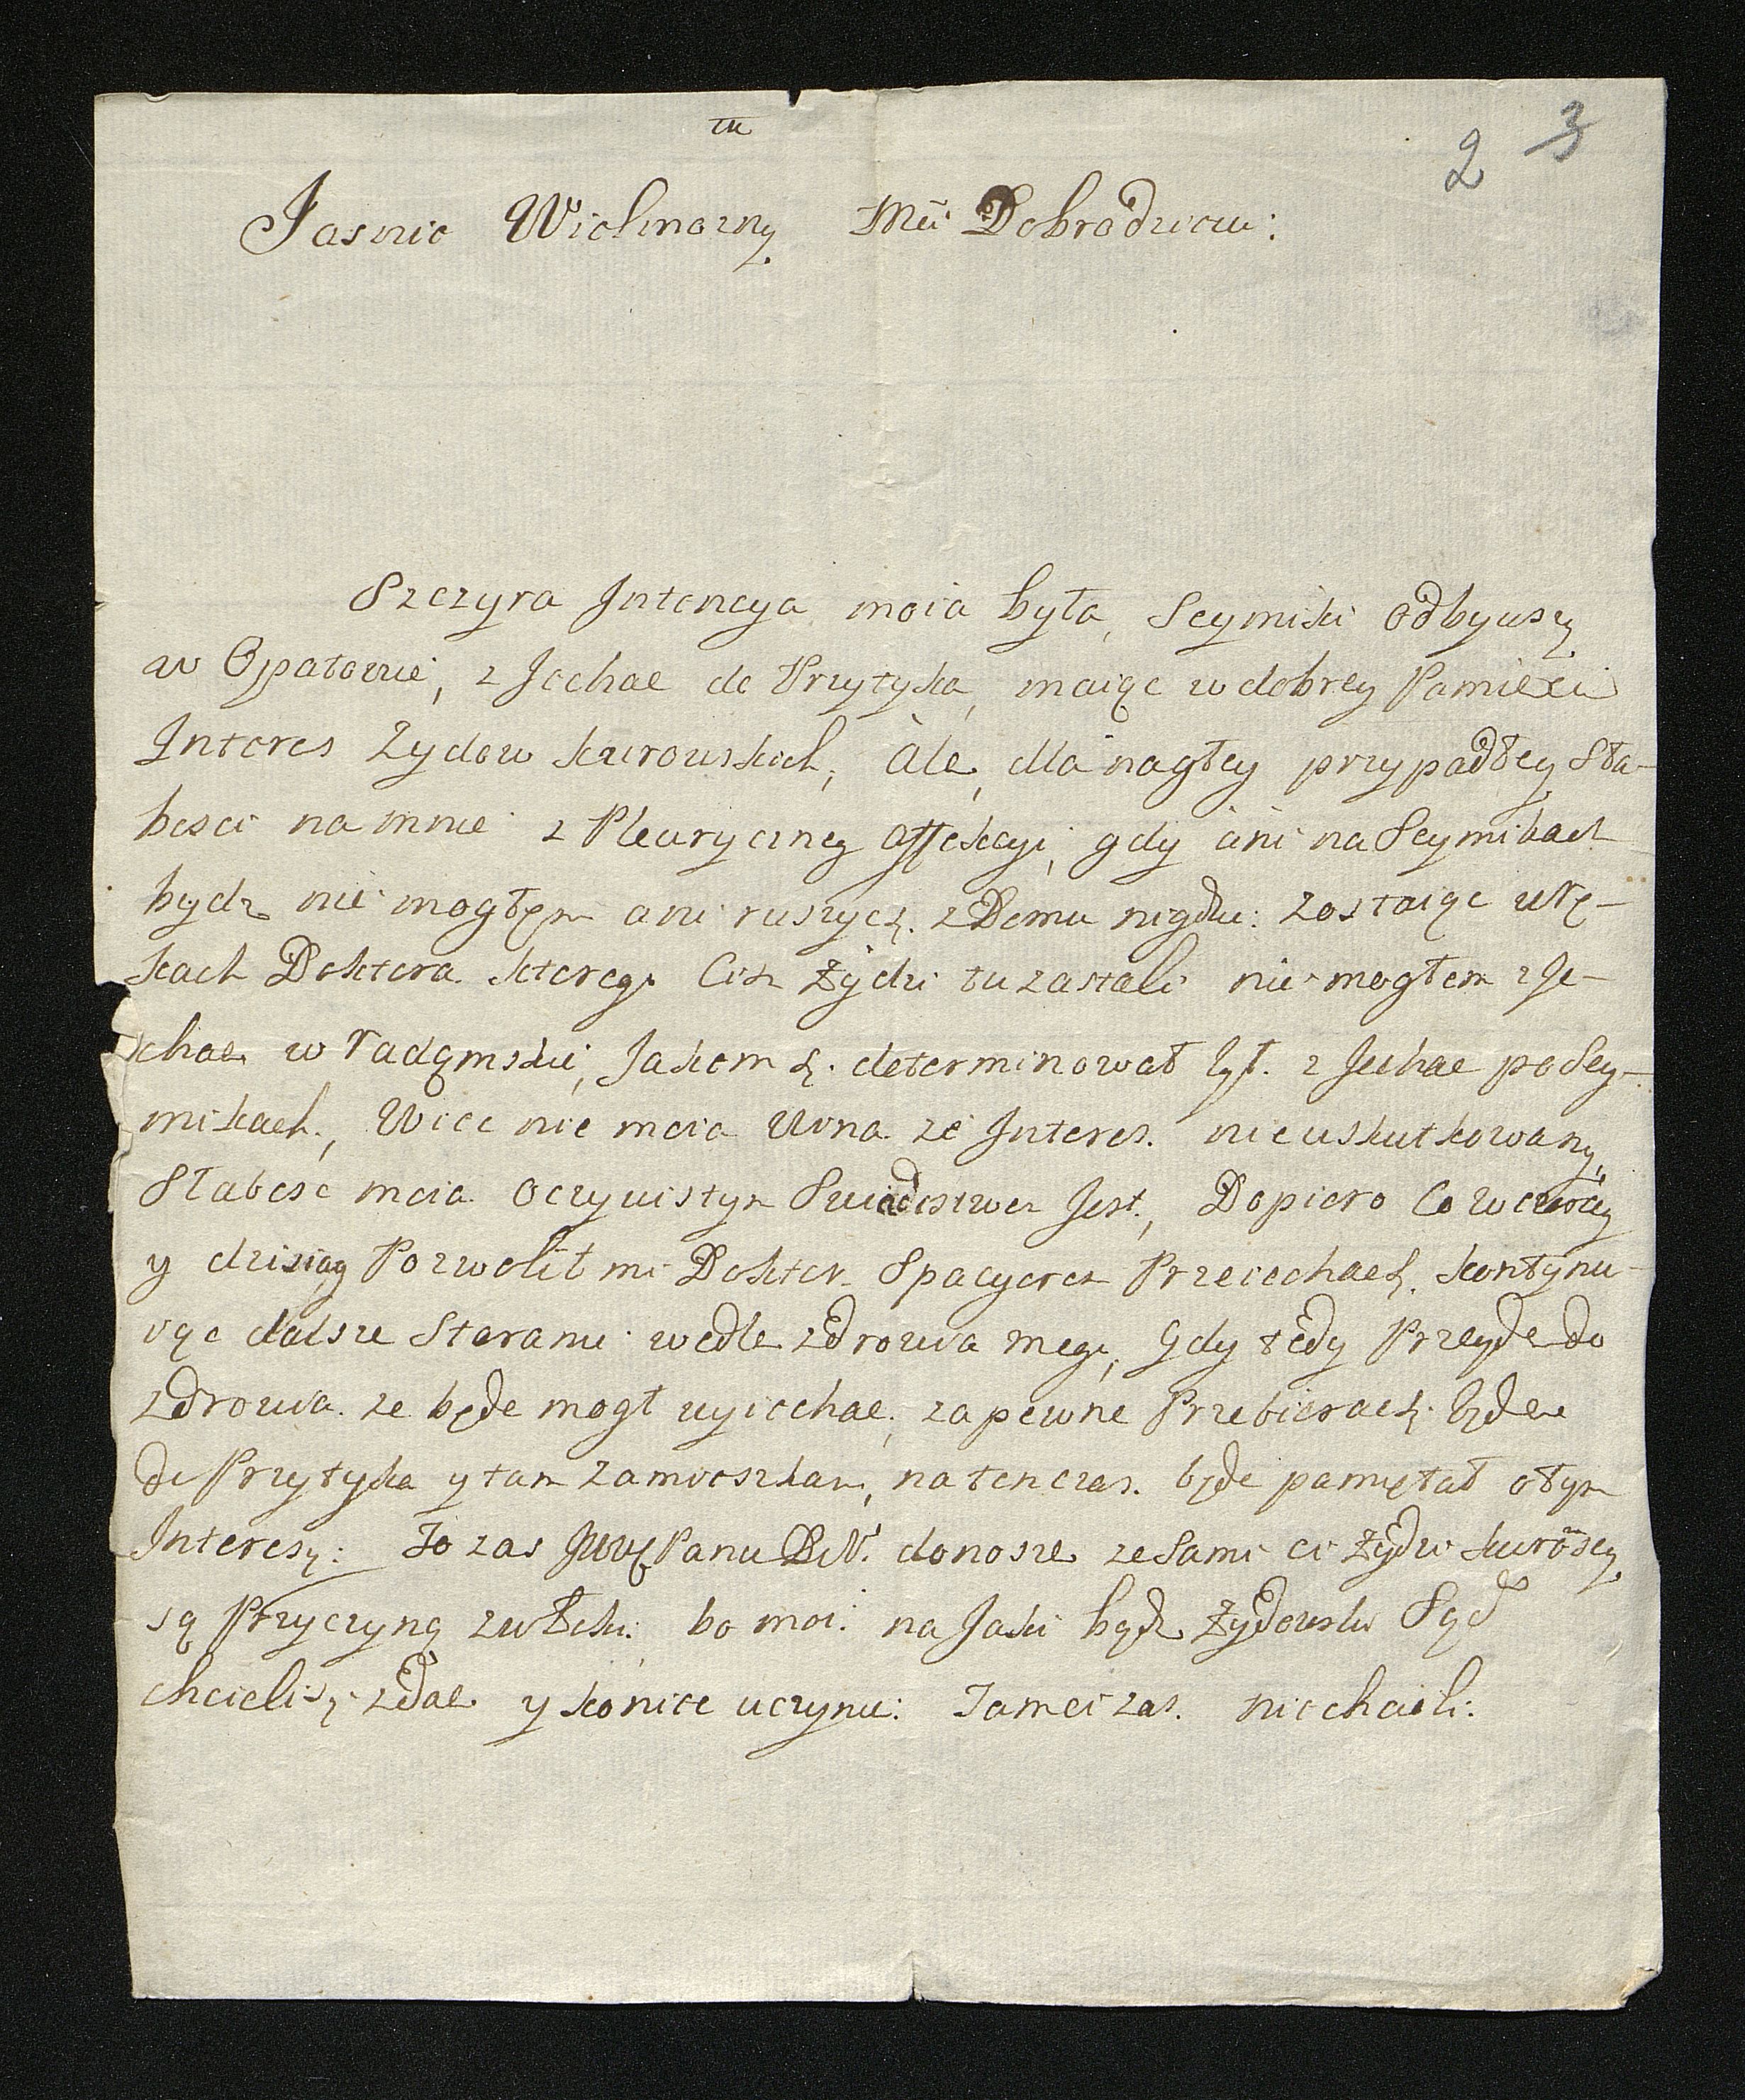 tu
2 3
Jasnie Wielmozny Mći Dobrodzieiu:
Szczyra Intencya moia była, Seymiki odbywszy
w Opatowie, zJechac do Przytyka, maiąc w dobrey Pamięci
Interes Zydow kurowskich, Ale, dla nagłey przypadłey Sła-
bosci na mnie z Pleuryczney affekcyi, gdy ani na Seymikach
bydz nie mogłem ani ruszyc się z Domu nigdzie: zostaiąc w Rę-
kach Doktora ktorego Ciż Żydzi tu zastali nie mogłem zJe-
chac w radomskie, Jakom się determinował był zJechac po Sey-
mikach, Wiec nie moia Wina ze Interes nieuskutkowany,
Słabosc moia oczywistym Swiadectwem Jest, Dopiero Co wczoray
y dzisiay Pozwolił mi Doktor Spacyerem Przeiechac się, kontynu-
uąc dalsze Staranie wedle zdrowia mego, Gdy tedy Przeyde do
zdrowia ze będe mogł wyiechac, zapewne Przebierac się będe
do Przytyka y tam zamieszkam, na ten czas będe pamiętał o tym
Interesie: To zas JWWPanu D. donosze ze Sami ci Żydzi kurowscy
są Przyczyną zwłoki, bo moi na Jaki bądz Żydowski Sąd
chcieli się zdac y koniec uczynic: Tamci zas nie chcieli: